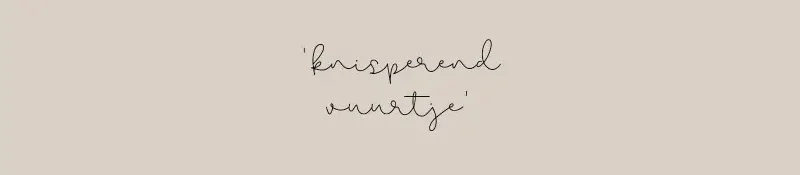 'knisperend
vuurtje'